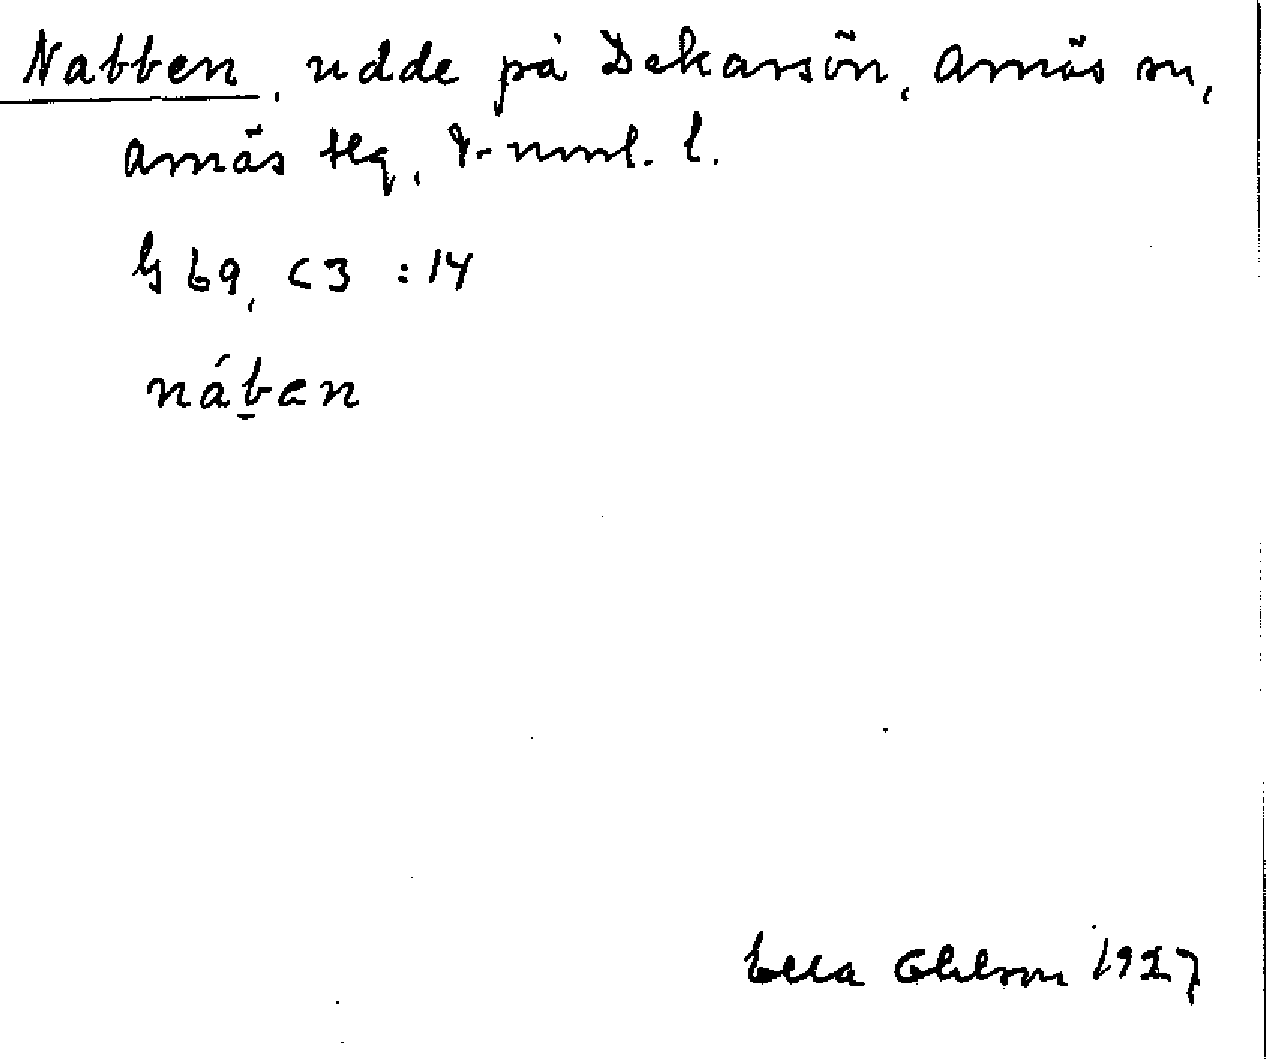 Nabben, udde på Dekarsön, Arnäs sn,
Arnäs tlg, V-nrrl. l.
G 69, C3 : 14
náb̲en
Ella Ohlson 1927